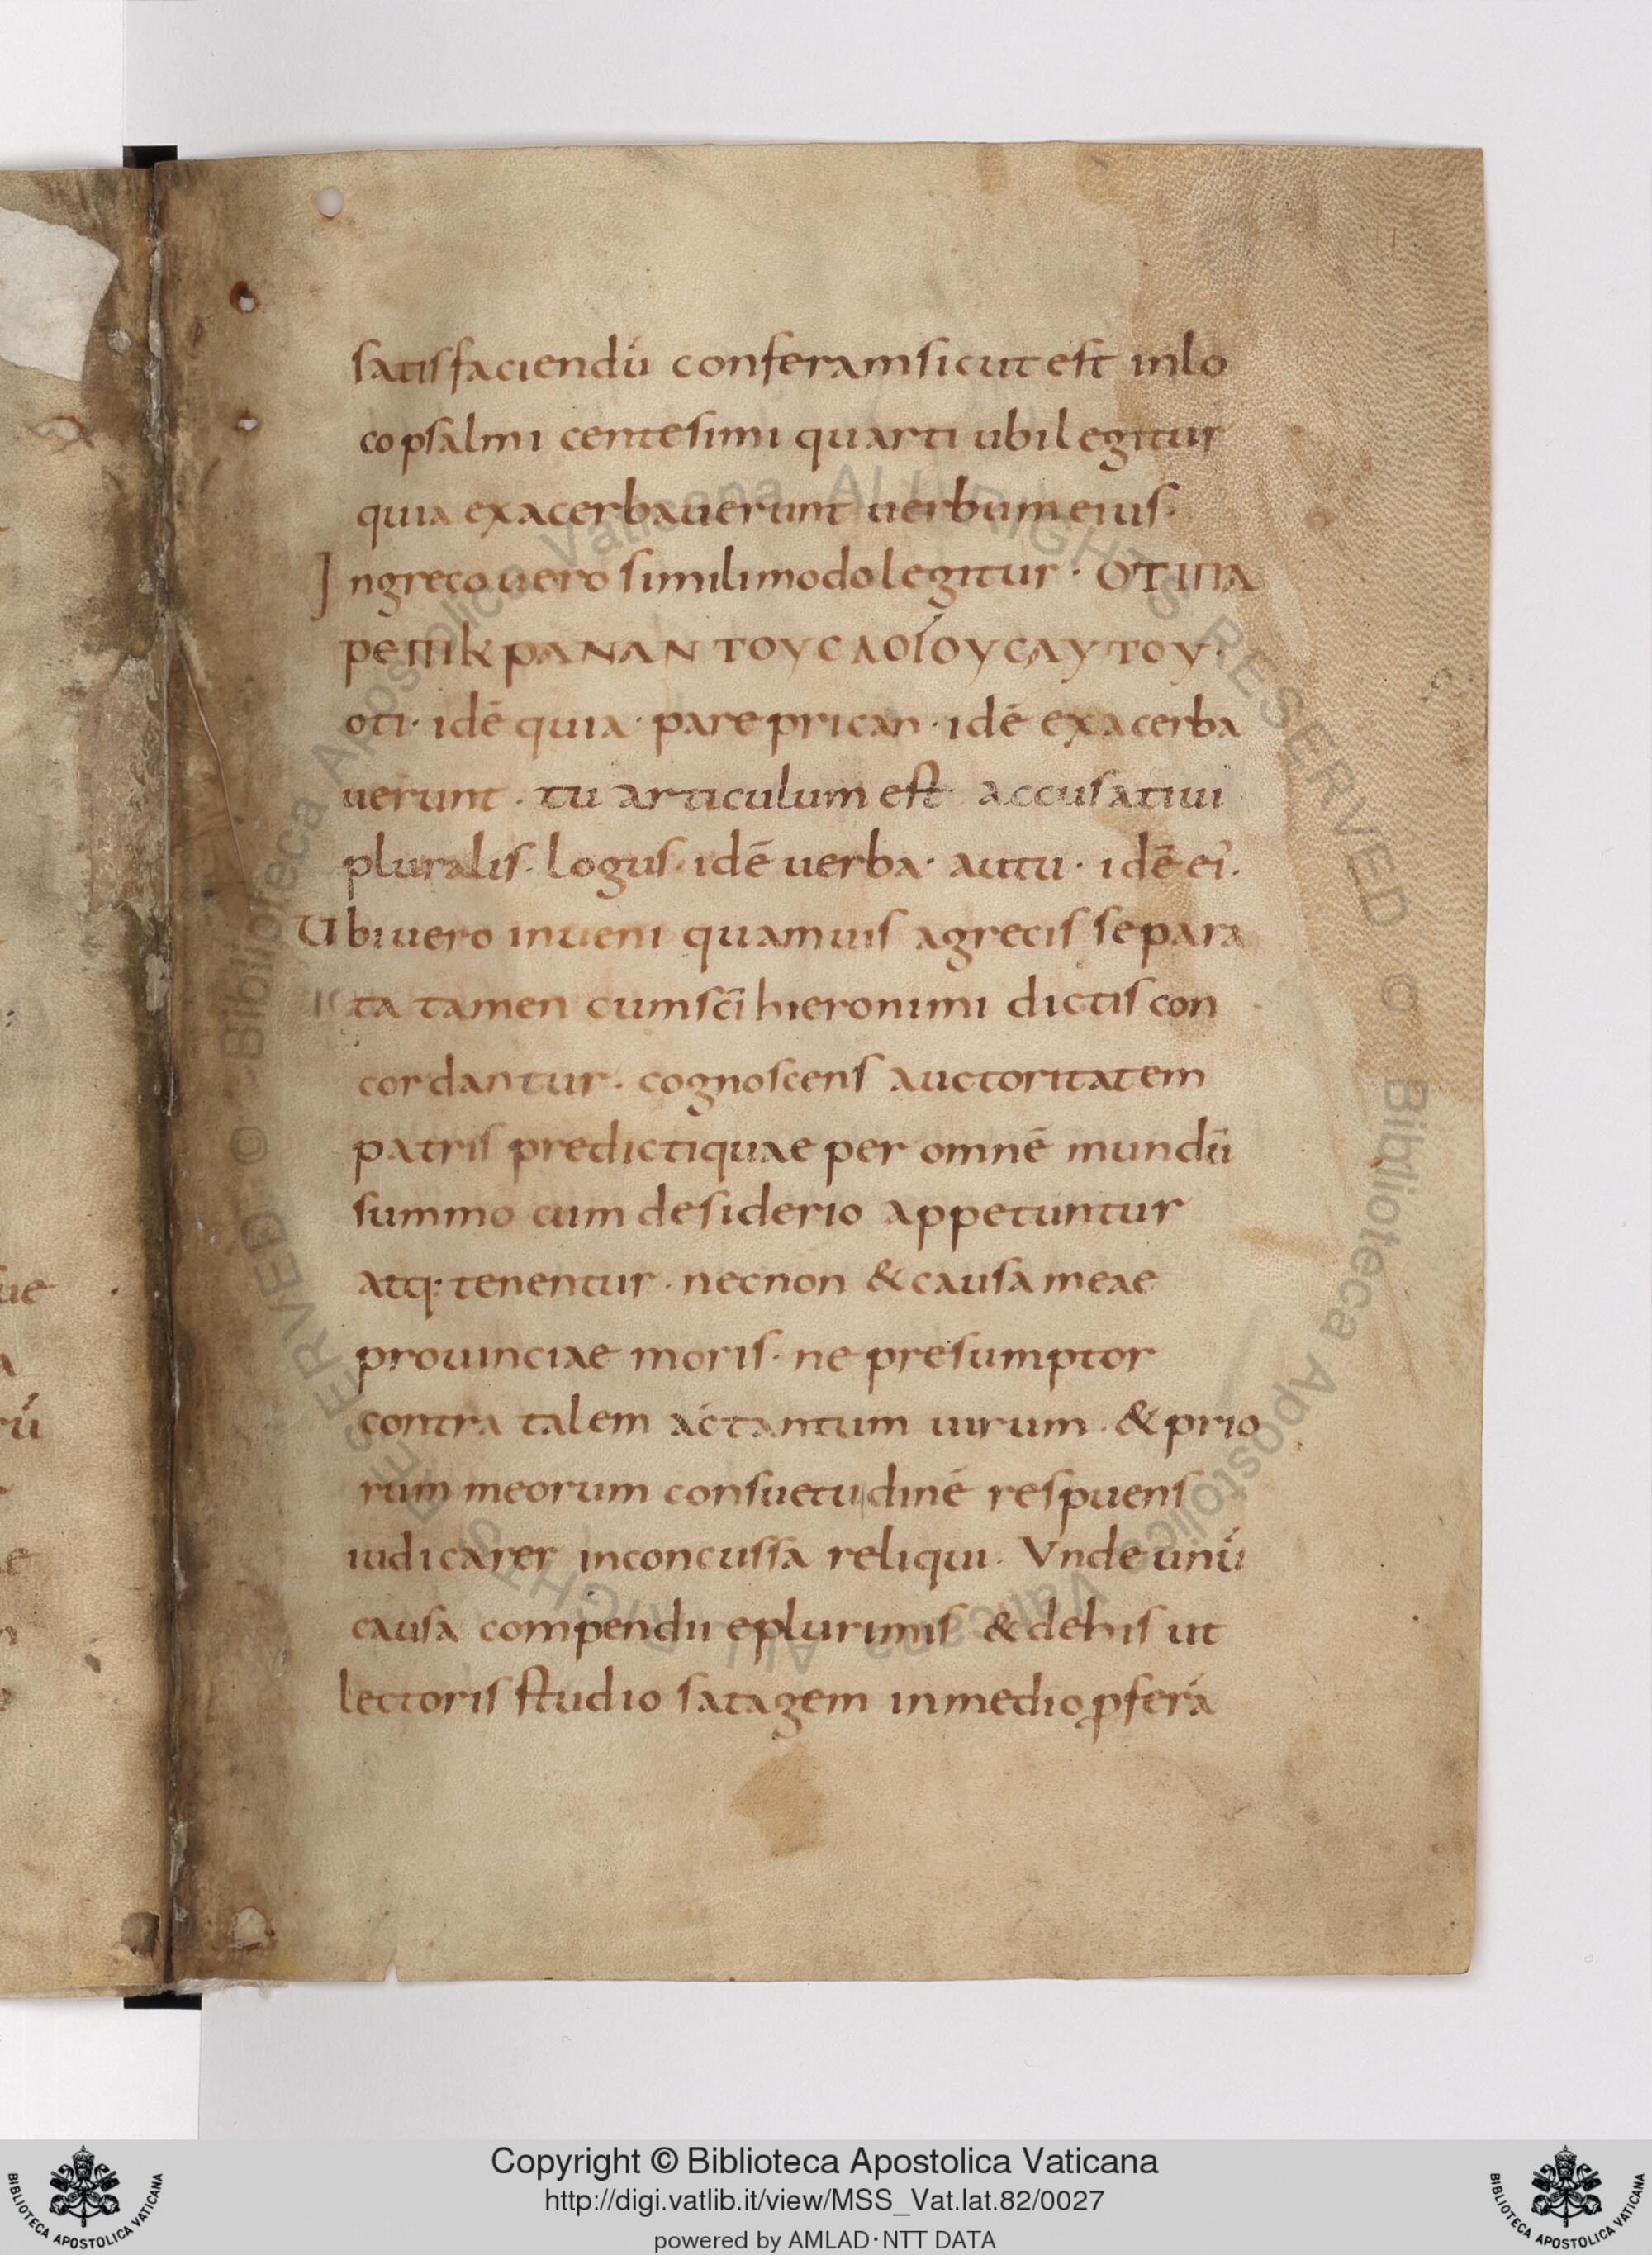 satisfaciendū conferam sicut est in lo
co psalmi centesimi quarti ubi legitur
quia exacerbauerunt uerbum eius·
In greco uero simili modo legitur · ΟΤΙΠΑ
ΡΕΠΙΚΡΑΝΑΝ ΤΟΥC ΛΟΓΟΥC ΑΥΤΟΥ·
oti· idē quia· pareprican· idē exacerba
uerunt · tu articulum est accusatiui
pluralis· logus· idē uerba· autu · idē ei·
Ubi uero inueni quamuis a grecis separa
ta tamen cum sc̄i hieronimi dictis con
cordantur· cognoscens auctoritatem
patris predicti quae per omnē mundū
summo cum desiderio appetuntur
atq: tenentur · necnon & causa meae
prouinciae moris· ne presumptor
contra talem ac tantum uirum · & prio
rum meorum consuetudinē respuens
iudicarer inconcussa reliqui· Vnde unū
causa compendii e plurimis & de his ut
lectoris studio satagem in medio ꝓferā
ue
rū
e
Copyright © Biblioteca Apostolica Vaticana
http://digi.vatlib.it/view/MSS_Vat.lat.82/0027
powered by AMLAD·NTT DATA
BIBLIOTECA APOSTOLICA VATICANA
BIBLIOTECA APOSTOLICA VATICANA